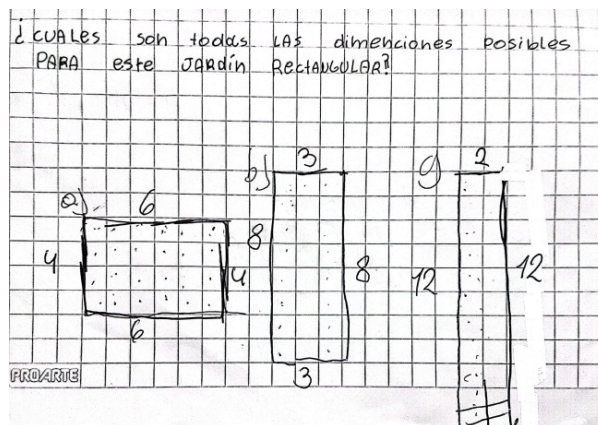 ¿cuales son todas LAS dimenciones posibles
PARA este JARdín RectANGULAR?
a) 6
4
4
6
b) 3
8
8
3
c) 2
12
12
PROARTE